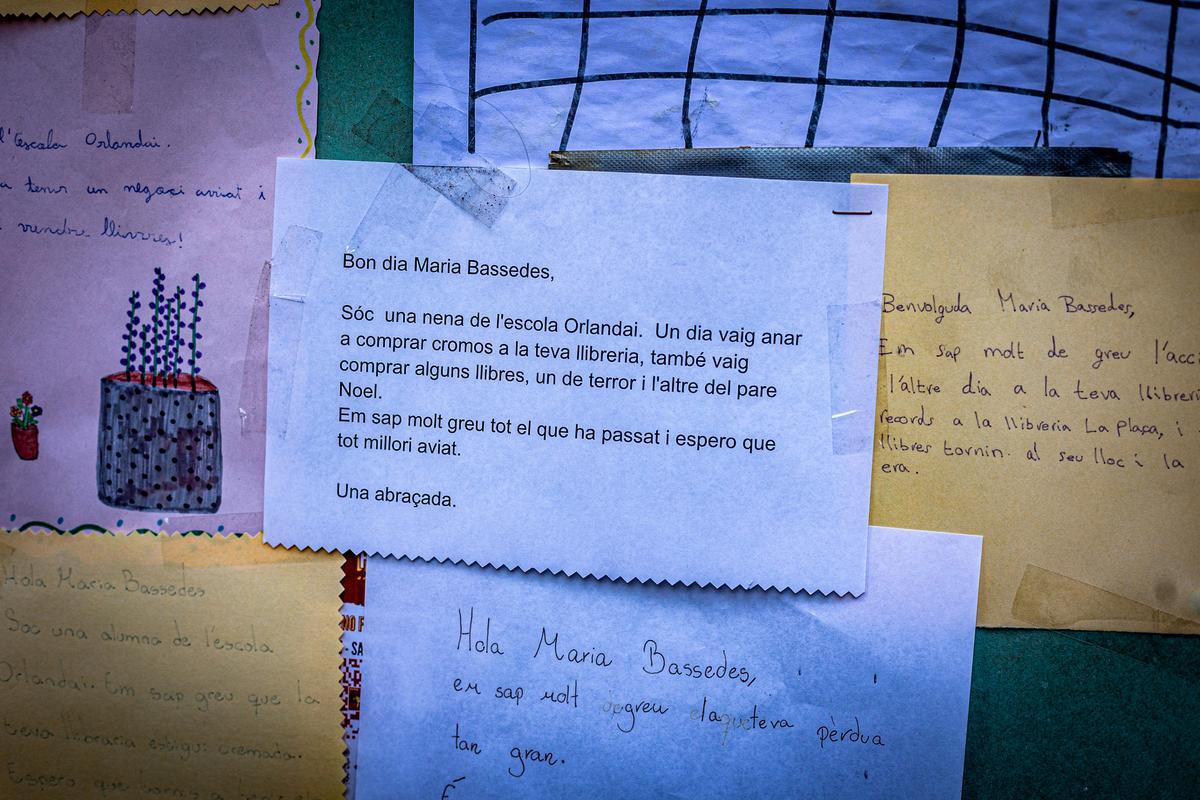 l'escola Orlandai.
a tenir un negoci aviat i
vendre llibres!
Bon dia Maria Bassedes,
Sóc una nena de l'escola Orlandai. Un dia vaig anar
a comprar cromos a la teva llibreria, també vaig
comprar alguns llibres, un de terror i l'altre del pare
Noel.
Em sap molt greu tot el que ha passat i espero que
tot millori aviat.
Una abraçada.
Benvolguda Maria Bassedes,
Em sap molt de greu l'acci
l'altre dia a la teva llibreri
records a la llibreria La plaça, i
llibres tornin. al seu lloc i la
era.
Hola Maria Bassedes
Soc una alumna de l'escola
Orlandai. Em sap greu que la
teva llibraria estigui cremada.
Espero que
- SA
Hola Maria Bassedes,
em sap molt greu la teva pèrdua
tan gran.